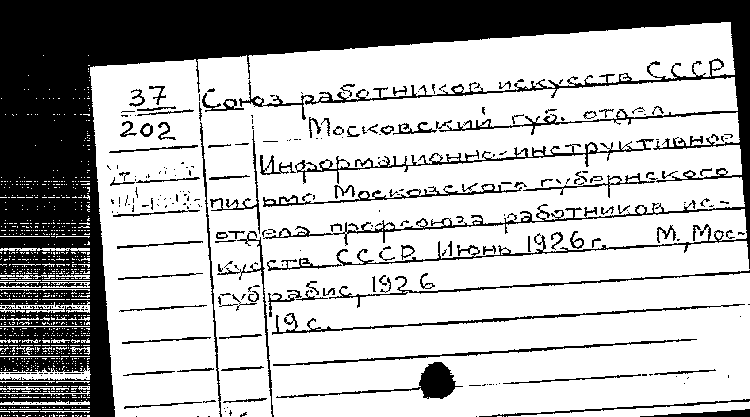 37
202
Союз работников искусств СССР
Московский губ. отдел.
Информационно-инструктивное
письмо Московского губернского
отдела профсоюза работников ис-
кусств СССР. Июнь 1926 г. М., Мос-
губрабис, 1926
19 с.